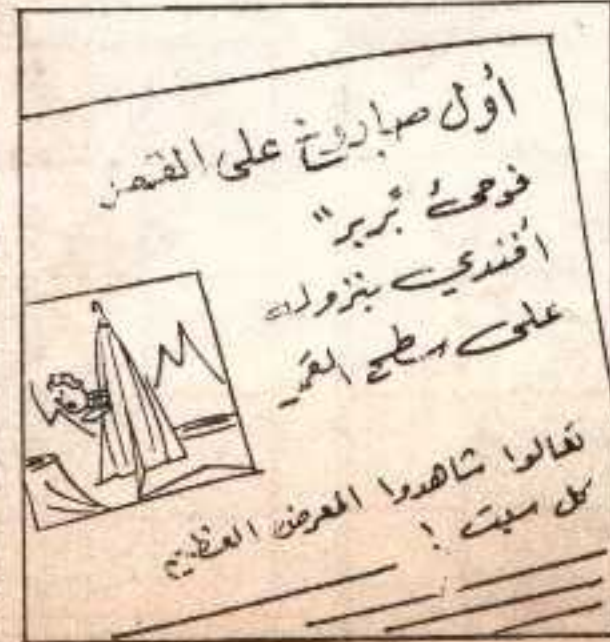 أول صاروخ على القمر
فوجئ "بربر"
أفندي بنزوله
على سطح القمر
تعالوا شاهدوا المعرض العظيم
كل سبت !